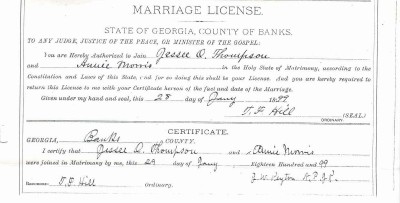 MARRIAGE LICENSE.
STATE OF GEORGIA, COUNTY OF BANKS.
TO ANY JUDGE, JUSTICE OF THE PEACE, OR MINISTER OF THE GOSPEL:
You are Hereby Authorized to Join Jessee D. Thompson
and Annie Morris in the Holy State of Matrimony, according to the
Constitution and Laws of this State, and for so doing this shall be your License. And you are hereby required to
return this License to me with your Certificate hereon of the fact and date of the Marriage.
Given under my hand and seal, this 28 day of Jany 1899
T. F. Hill
ORDINARY. (SEAL)
CERTIFICATE.
GEORGIA, Banks COUNTY.
I certify that Jessee D. Thompson and Annie Morris
were joined in Matrimony by me, this 29 day of Jany Eighteen Hundred and 99
T. F. Hill Ordinary.